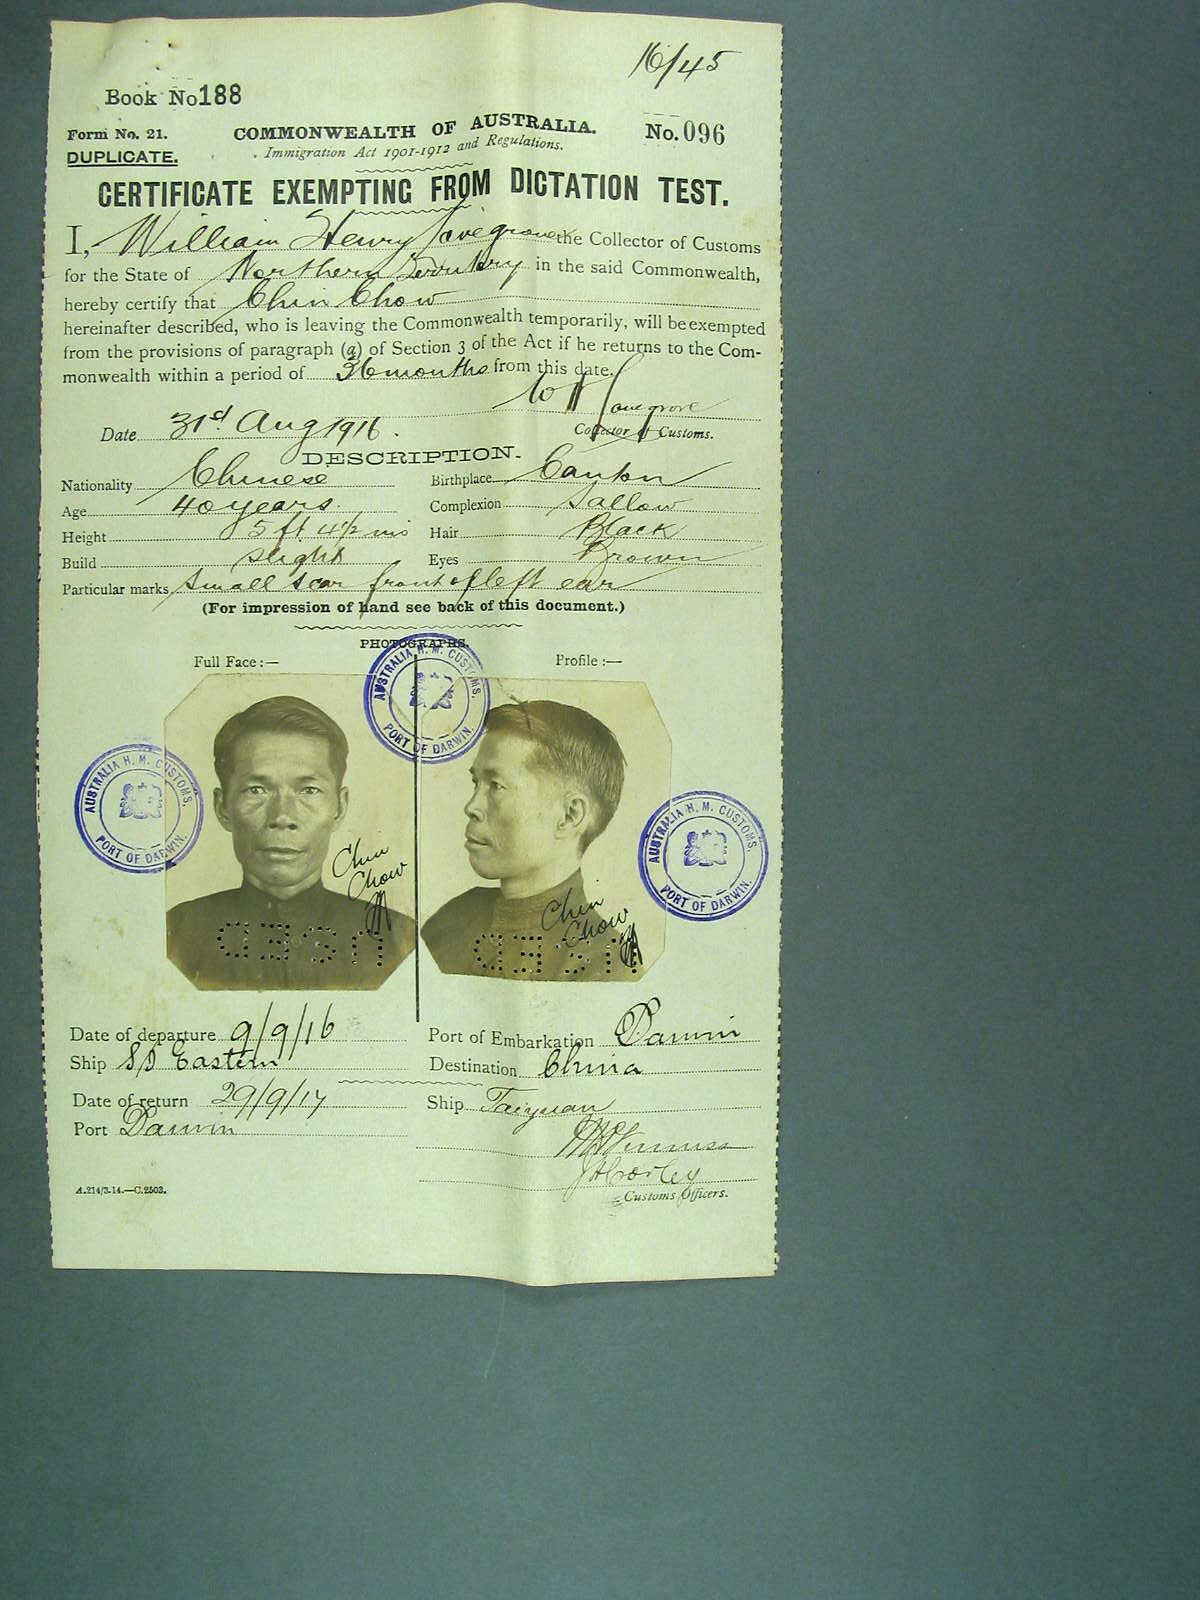 16/45
Book No 188
Form No. 21. COMMONWEALTH OF AUSTRALIA. No. 096
DUPLICATE. Immigration Act 1901-1912 and Regulations.
CERTIFICATE EXEMPTING FROM DICTATION TEST.
I, William Henry the Collector of Customs
for the State of Northern Territory in the said Commonwealth,
hereby certify that Chin Chow
hereinafter described, who is leaving the Commonwealth temporarily, will be exempted
from the provisions of paragraph (a) of Section 3 of the Act if he returns to the Com-
monwealth within a period of 36 months from this date.
Date 31st Aug 1916. Collector of Customs.
DESCRIPTION.
Nationality Chinese Birthplace Canton
Age 40 years. Complexion Sallow
Height 5 ft 4 1/2 ins Hair Black
Build slight Eyes Brown
Particular marks Small scar front of left ear
(For impression of hand see back of this document.)
PHOTOGRAPHS.
Full Face :— Profile :—
AUSTRALIA H. M. CUSTOMS. PORT OF DARWIN.
AUSTRALIA H. M. CUSTOMS. PORT OF DARWIN.
AUSTRALIA H. M. CUSTOMS. PORT OF DARWIN.
Chin
Chow
Chin
Chow
Date of departure 9/9/16 Port of Embarkation Darwin
Ship SS Eastern Destination China
Date of return 29/9/17 Ship Taiyuan
Port Darwin
A.214/3.14.—C.2503.
Customs Officers.